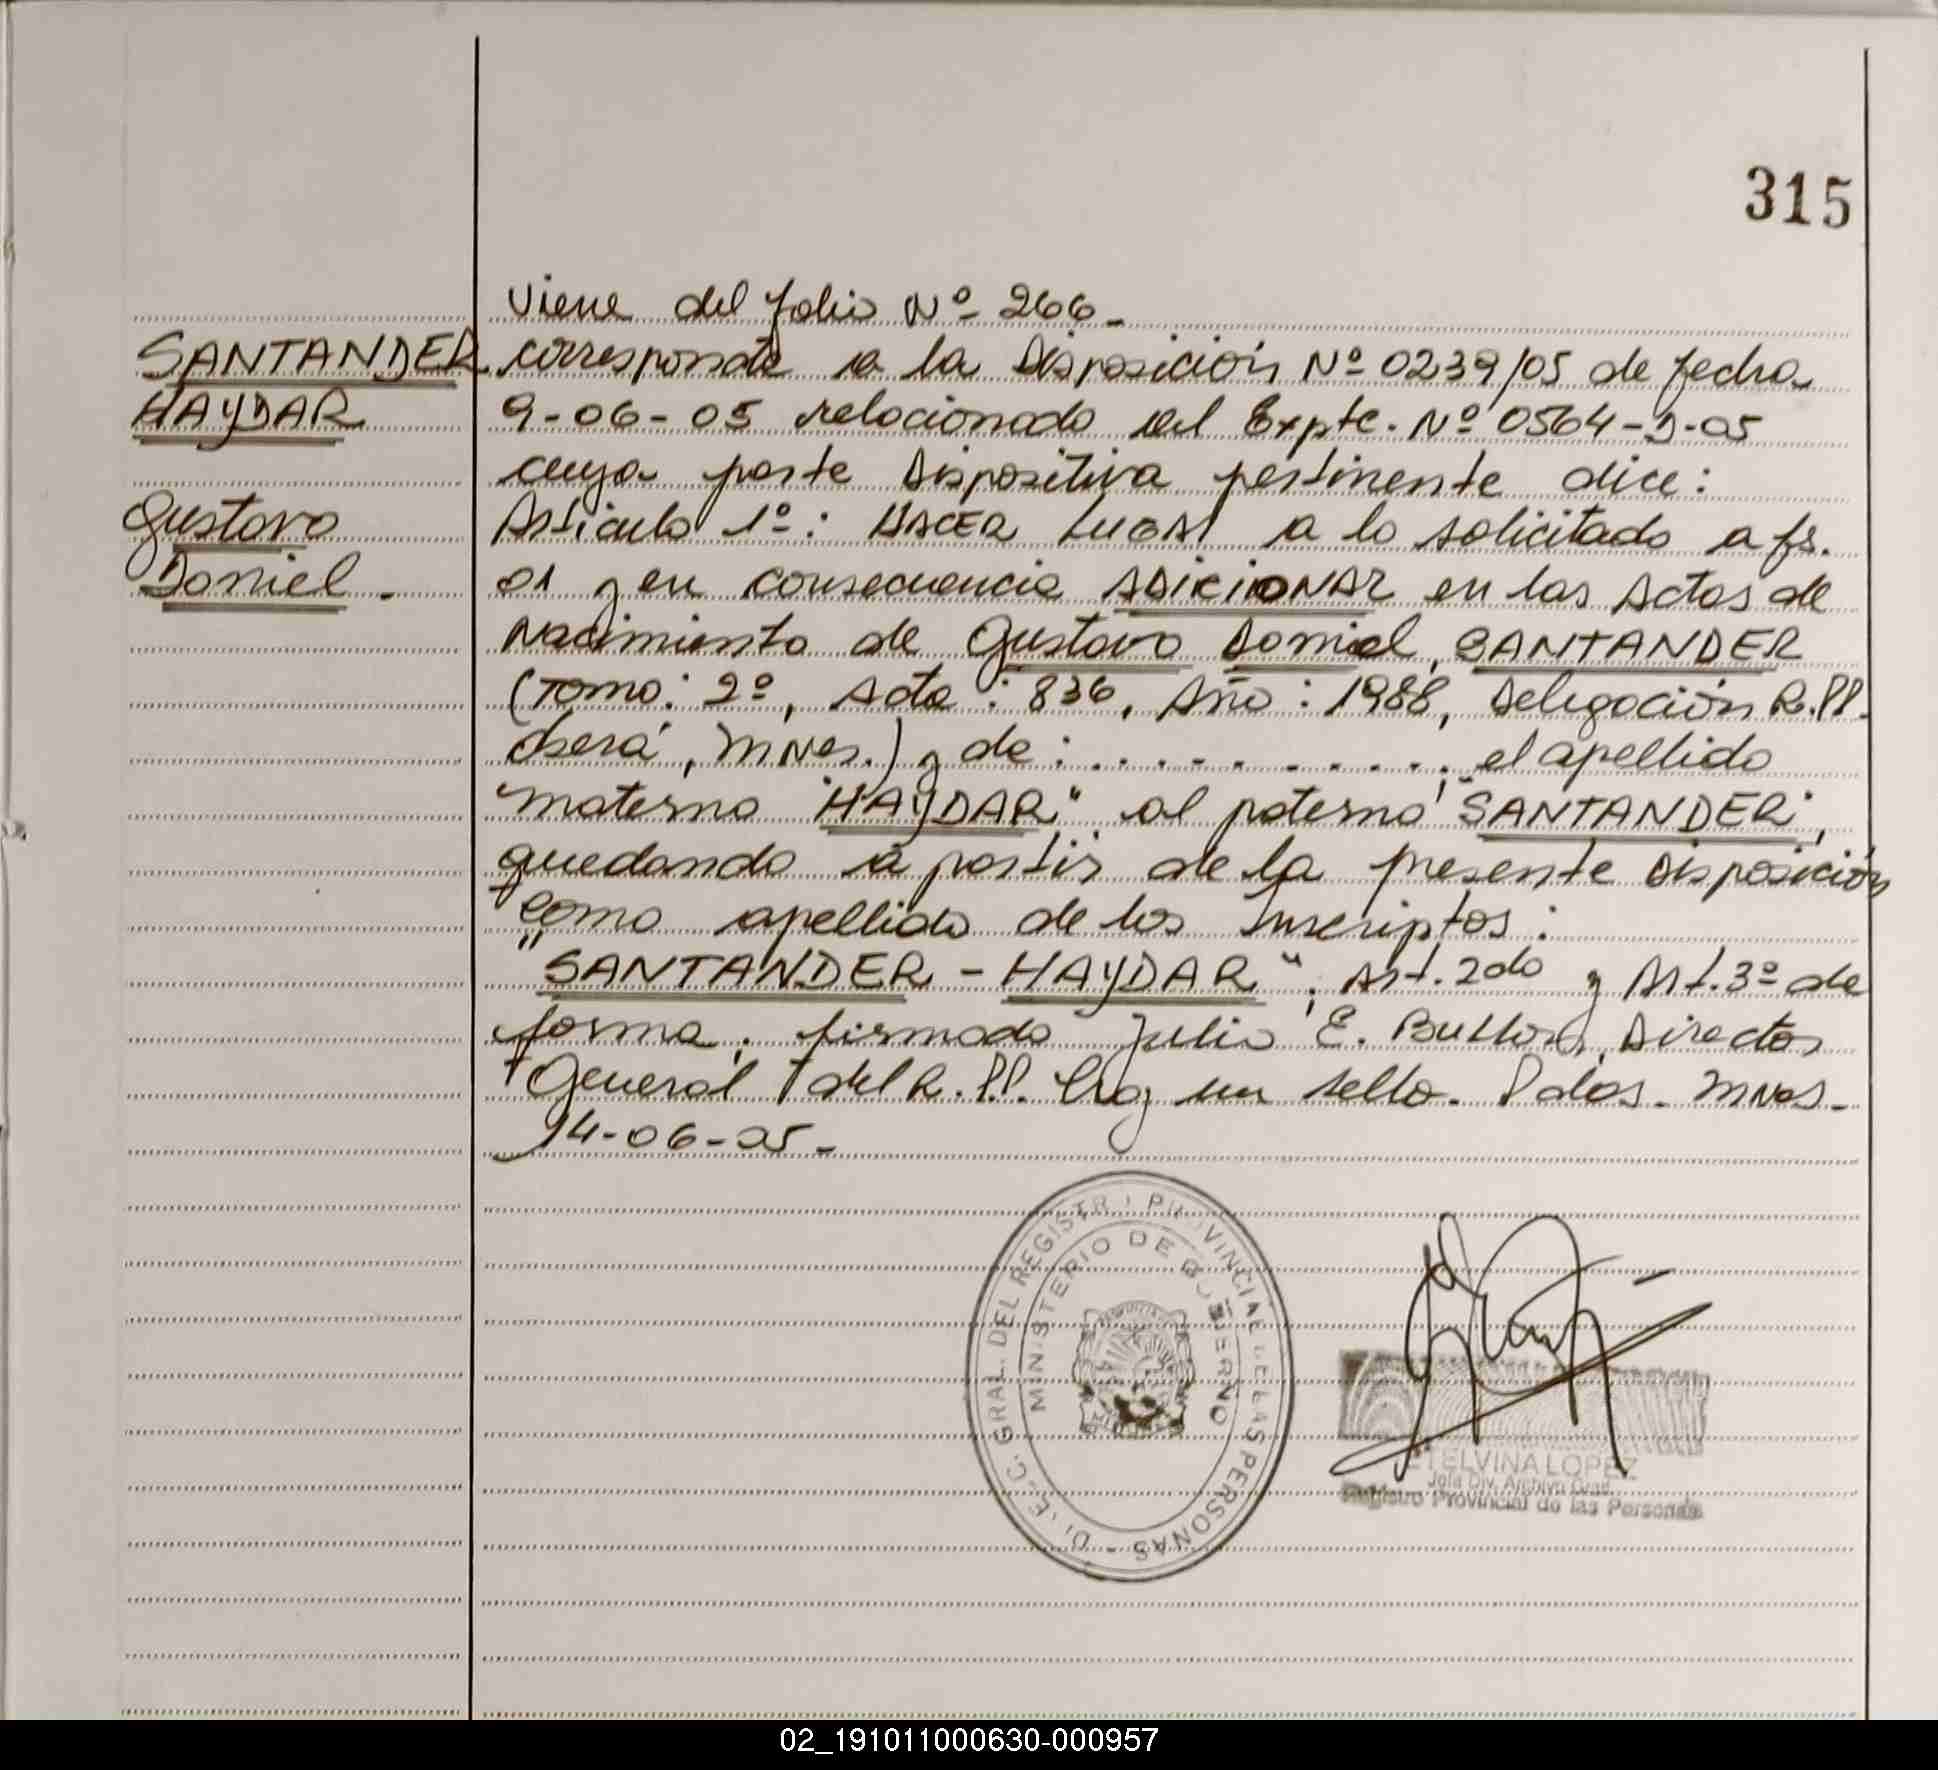 315
Viene del folio Nº 266_
SANTANDER
HAYDAR
Gustavo
Daniel.-
corresponde a la Disposición Nº 0239/05 de fecha
9-06-05 relacionado al Expte. Nº 0564-D-05
cuya parte Dispositiva pertinente dice:
Artículo 1º: HACER LUGAR a lo solicitado a fs.
01 y en consecuencia ADICIONAR en las Actas de
Nacimiento de Gustavo Daniel, SANTANDER
(Tomo: 2º, Acta: 836, Año: 1988, Delegación R.PP.
Oberá, Mnes.) y de: . . . . . . . . . . , el apellido
materno "HAYDAR", al paterno "SANTANDER",
quedando a partir de la presente Disposición
como apellido de los Inscriptos:
"SANTANDER - HAYDAR", Art. 2do y Art. 3º de
forma, firmado Julio E. Director
General del R.PP. Hay un sello. Pdas. Mnes-
14-06-05-
DI.E.C. GRAL. DEL REGISTRO PROVINCIAL DE LAS PERSONAS -
MINISTERIO DE GOBIERNO
ETELVINA LOPEZ
Jefa Div. Archivo Gral.
Registro Provincial de las Personas
02_191011000630-000957